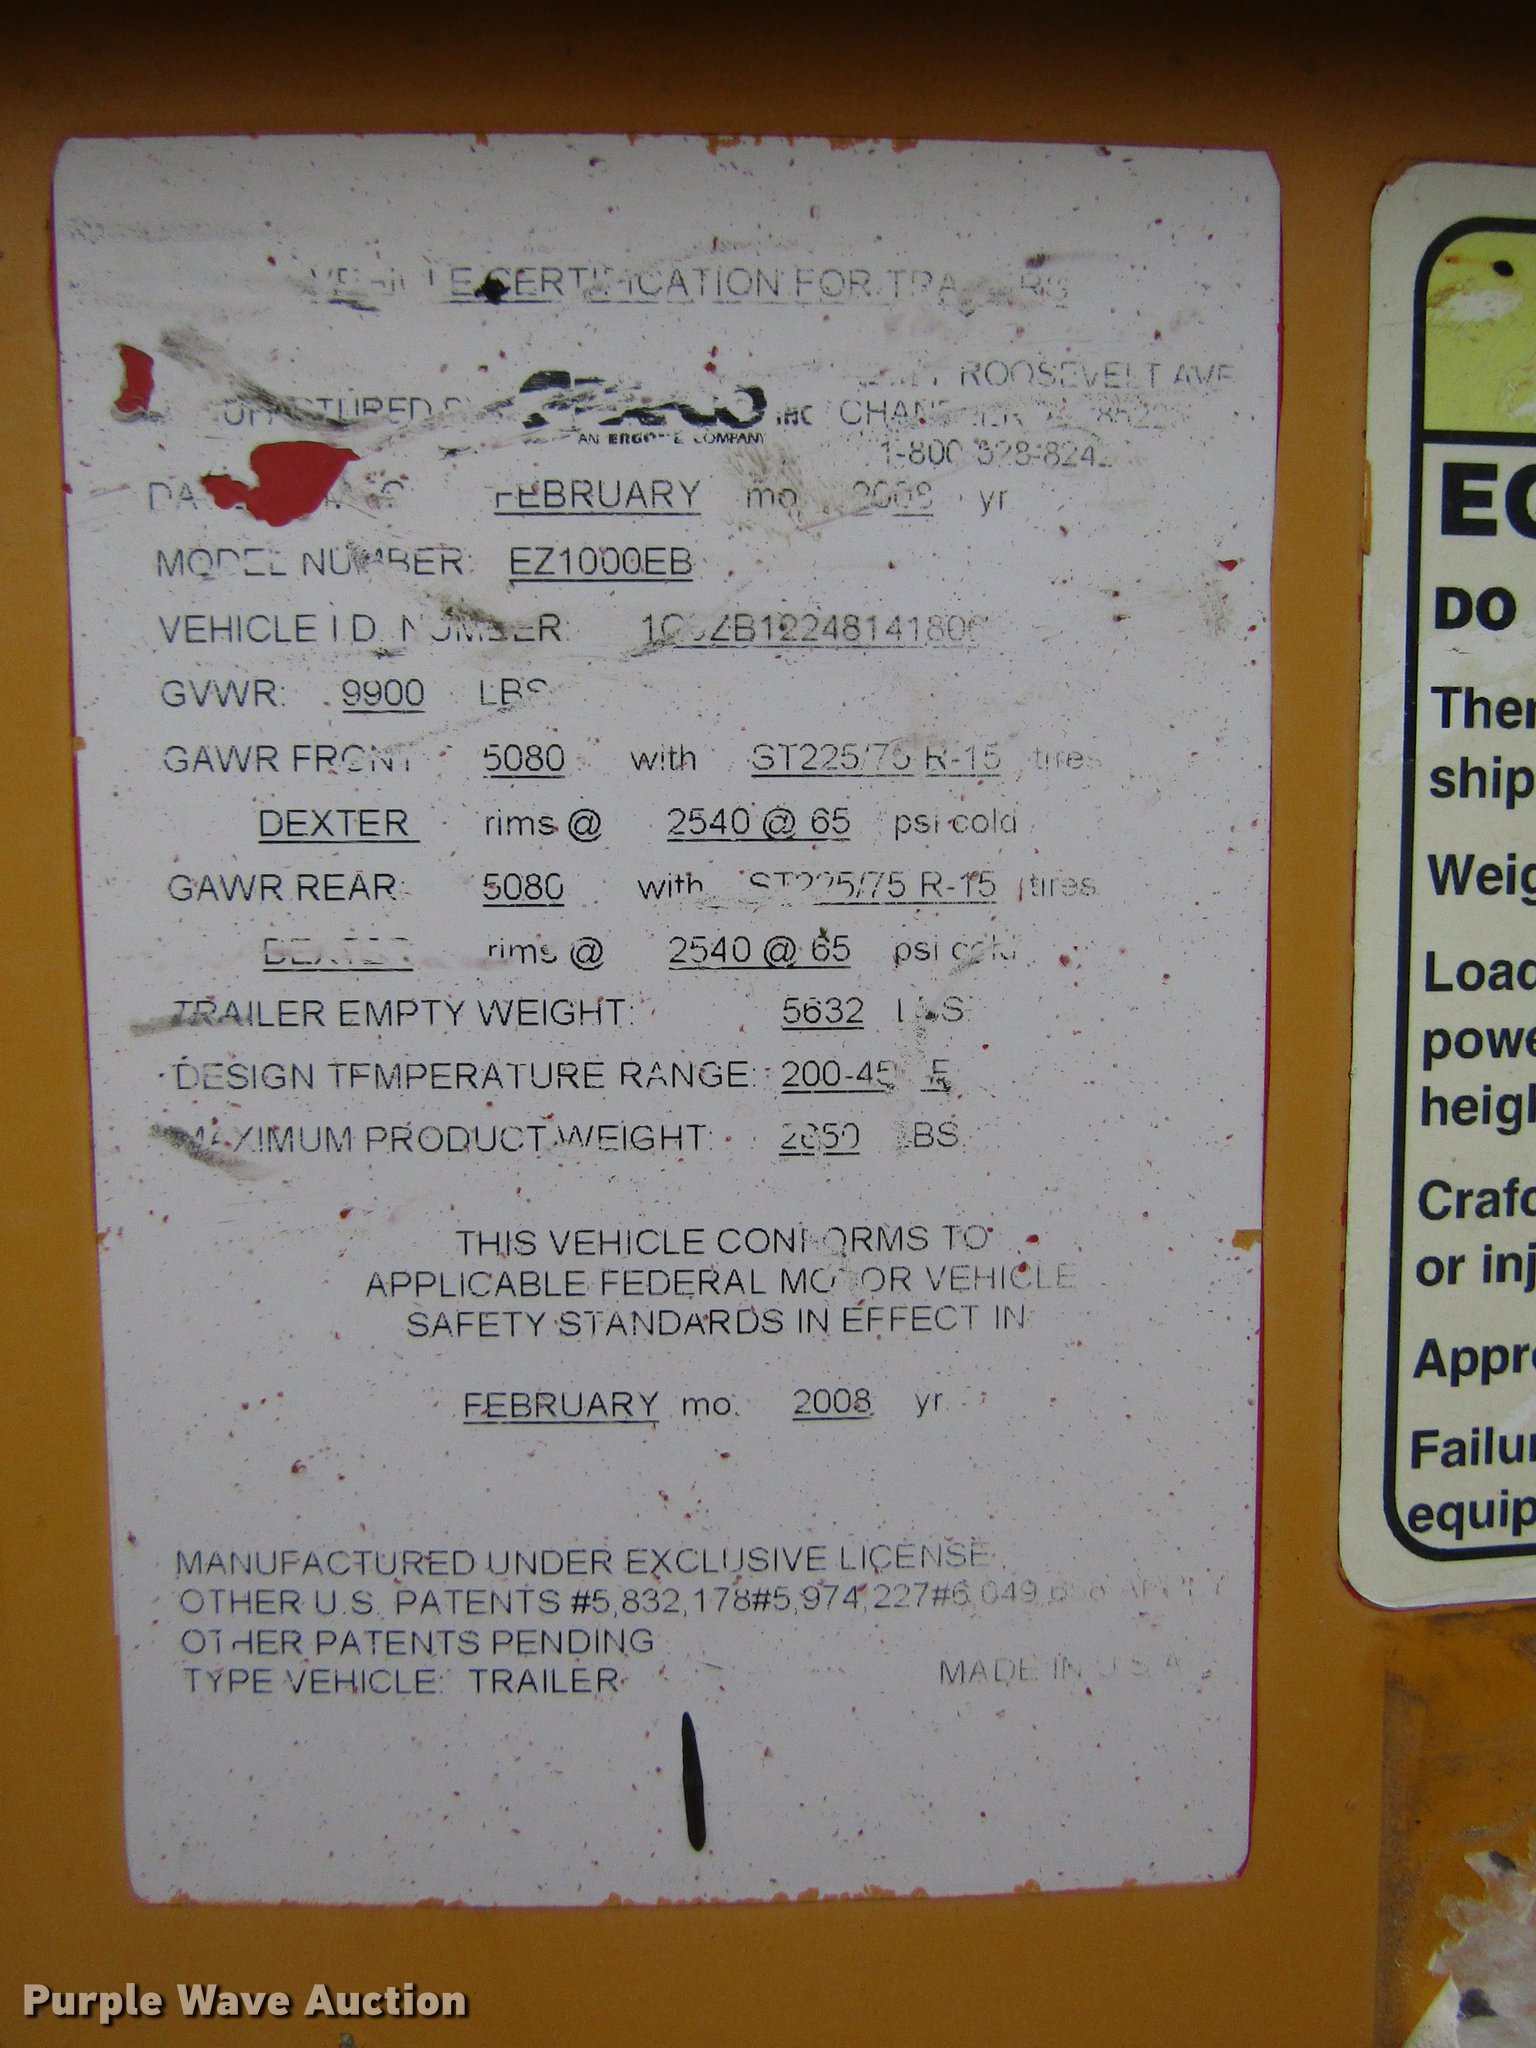 VEHICLE CERTIFICATION FOR TRAILERS
ROOSEVELT AVE
MANUFACTURED BY INC CHANDLER
AN ERGON COMPANY
1-800 528-824
FEBRUARY mo. 2008 yr
MODEL NUMBER: EZ1000EB
VEHICLE I.D. NUMBER:
GVWR: 9900 LBS
GAWR FRONT 5080 with ST225/75 R-15 tires
DEXTER rims @ 2540 @ 65 psi cold
GAWR REAR: 5080 with ST225/75 R-15 tires
DEXTER rims @ 2540 @ 65 psi cold
TRAILER EMPTY WEIGHT: 5632 LBS.
DESIGN TEMPERATURE RANGE:
MAXIMUM PRODUCT WEIGHT: LBS.
THIS VEHICLE CONFORMS TO
APPLICABLE FEDERAL MOTOR VEHICLE
SAFETY STANDARDS IN EFFECT IN:
FEBRUARY mo. 2008 yr.
MANUFACTURED UNDER EXCLUSIVE LICENSE
OTHER U.S. PATENTS #5,832,178#5,974,227 APPLY
OTHER PATENTS PENDING
TYPE VEHICLE: TRAILER
MADE IN U.S.A.
DO
ship
Load
Crafc
or inj
equip
Purple Wave Auction